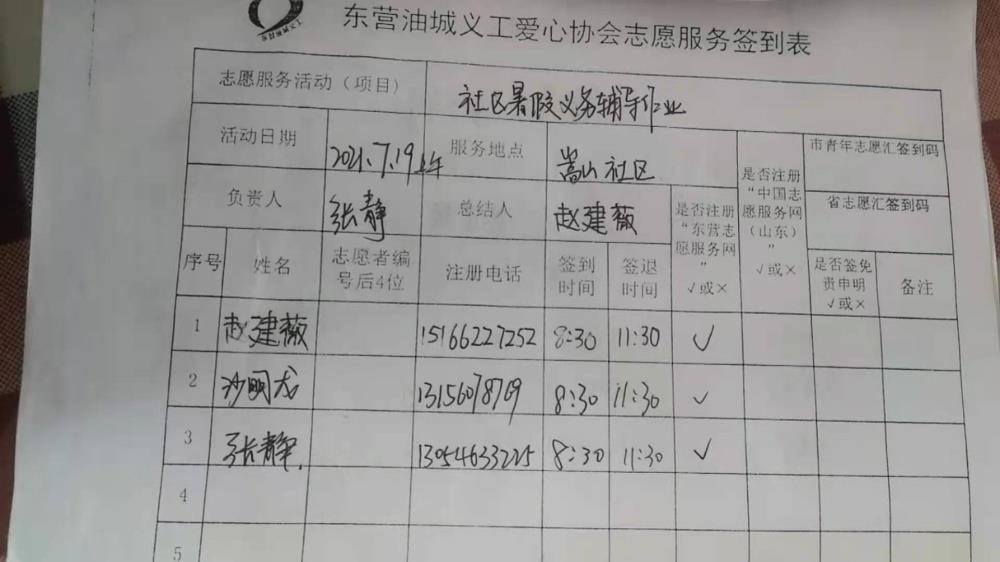 东营油城义工
东营油城义工爱心协会志愿服务签到表
志愿服务活动（项目） 社区暑假义务辅导作业
活动日期 2021.7.19上午 服务地点 嵩山社区 是否注册“中国志愿服务网（山东）” √或× 市青年志愿汇签到码
负责人 张静 总结人 赵建薇 是否注册“东营志愿服务网” √或× 省志愿汇签到码
序号 姓名 志愿者编号后4位 注册电话 签到时间 签退时间 是否签免责申明 √或× 备注
1 赵建薇 15166227252 8:30 11:30 √
2 沙明龙 13156078769 8:30 11:30 √
3 张静 13054633225 8:30 11:30 √
4
5